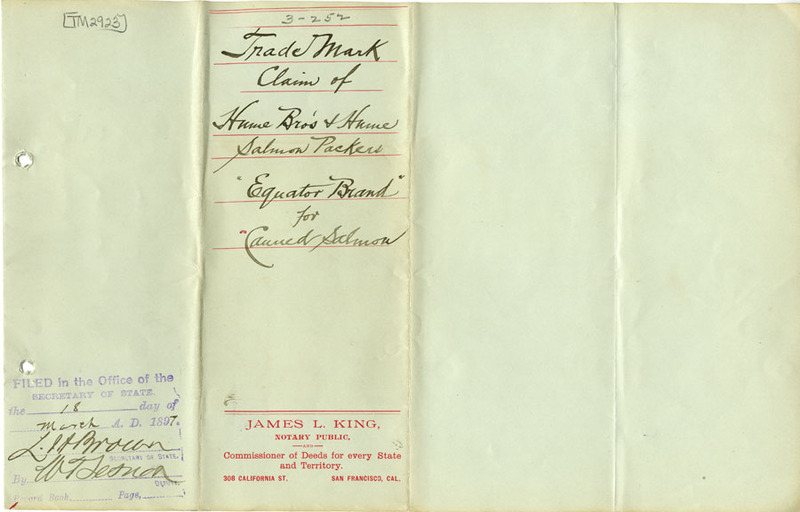 TM2923
3-252
Trade Mark
Claim of
Hume Bro's & Hume
Salmon Packers
"Equator Brand"
for
"Canned Salmon
FILED in the Office of the
SECRETARY OF STATE.
the 18 day of
March A. D. 1897.
L. H. Brown
SECRETARY OF STATE.
By
Deputy.
Record Book, Page,
JAMES L. KING,
NOTARY PUBLIC,
—AND—
Commissioner of Deeds for every State
and Territory.
308 CALIFORNIA ST. SAN FRANCISCO, CAL.